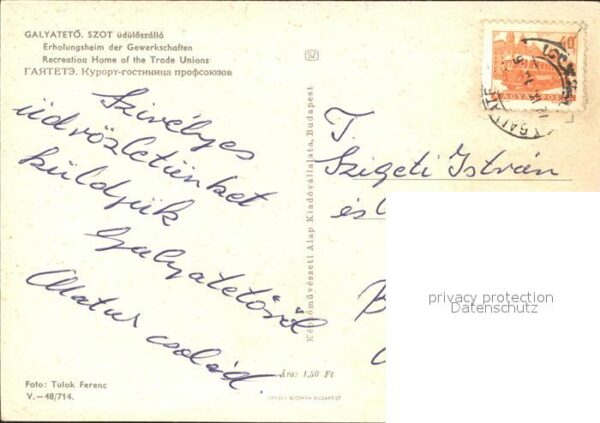 GALYATETŐ. SZOT üdülőszálló
Erholungsheim der Gewerkschaften
Recreating Home of the Trade Unions
ГАЯТЕТЭ. Курорт-гостиница профсоюзов
Szívélyes
üdvözletünket
küldjük
Galyatetőről
család.
Foto: Tulok Ferenc
V.—48/714.
Képzőművészeti Alap Kiadóvállalata, Budapest
Ára: 1,50 Ft
MAGYAR POSTA
T.
Szigeti István
és
B
privacy protection
Datenschutz